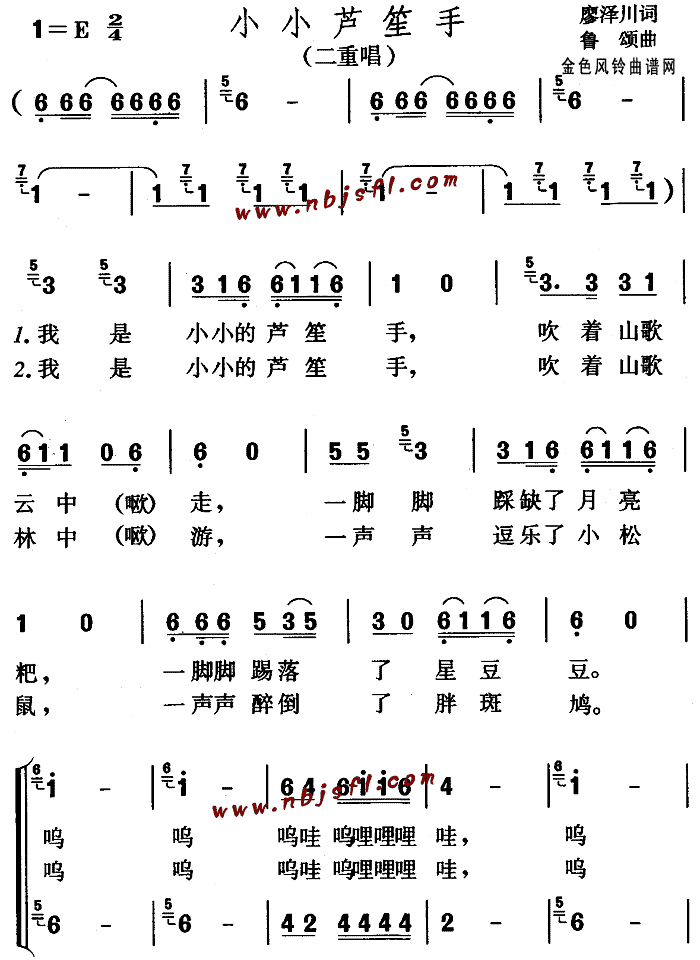 1=E 2/4 小小芦笙手 廖泽川词
(二重唱) 鲁 颂曲
金色风铃曲谱网
( 6 66 6666 | 5 6 - | 6 66 6666 | 5 6 - |
7 1 - | 1 7 1 7 1 | 7 1 7 1 | 7 1 - | 1 7 1 7 1 | 7 1 7 1 ) |
www.nbjsfl.com
5 3 5 3 | 3 1 6 6 1 1 6 | 1 0 | 5 3. 3 3 1 |
1.我 是 小小的 芦 笙 手, 吹 着 山歌
2.我 是 小小的 芦 笙 手, 吹 着 山歌
6 1 1 0 6 | 6 0 | 5 5 5 3 | 3 1 6 6 1 1 6 |
云 中 (噉) 走, 一脚 脚 踩缺了 月 亮
林 中 (噉) 游, 一声 声 逗乐了 小 松
1 0 | 6 6 6 5 3 5 | 3 0 6 1 1 6 | 6 0 |
粑, 一脚脚 踢落 了 星 豆 豆。
鼠, 一声声 醉倒 了 胖 斑 鸠。
6 1 - | 6 1 - | 6 4 6 1 1 6 | 4 - | 6 1 - |
www.nbjsfl.com
呜 呜 呜哇 呜哩哩哩 哇, 呜
呜 呜 呜哇 呜哩哩哩 哇, 呜
5 6 - | 5 6 - | 4 2 4 4 4 4 | 2 - | 5 6 - |